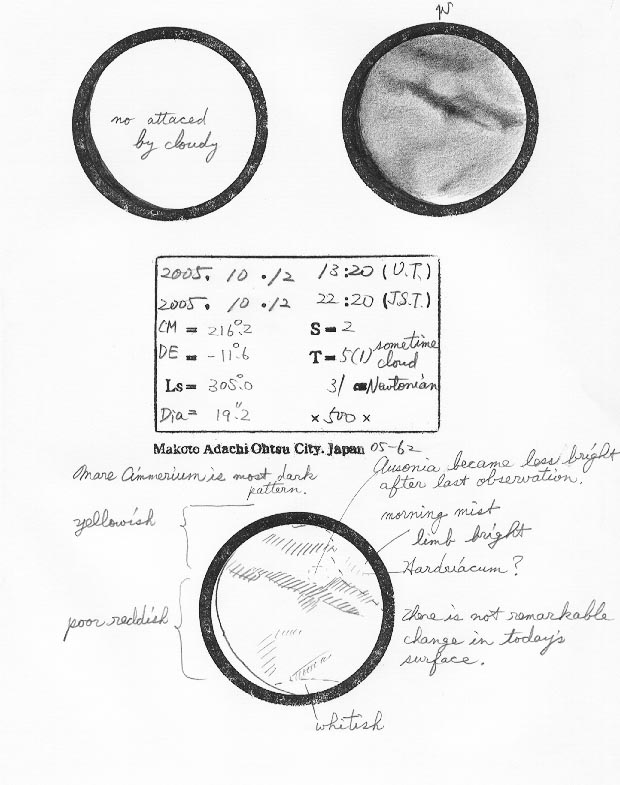 no attaced
by cloudy
2005. 10 . 12 13:20 (U.T.)
2005. 10 . 12 22:20 (J.S.T.)
CM = 216°.2 S = 2
DE = -11°.6 T = 5(1) sometime cloud
Ls = 305°.0 31 Newtonian
Dia = 19".2 × 500 ×
Makoto Adachi Ohtsu City. Japan 05-62
Mare Cimmerium is most dark
pattern.
Ausonia became less bright
after last observation.
yellowish
morning mist
limb bright
Hardriacum?
poor reddish
There is not remarkable
change in today's
surface.
whitish